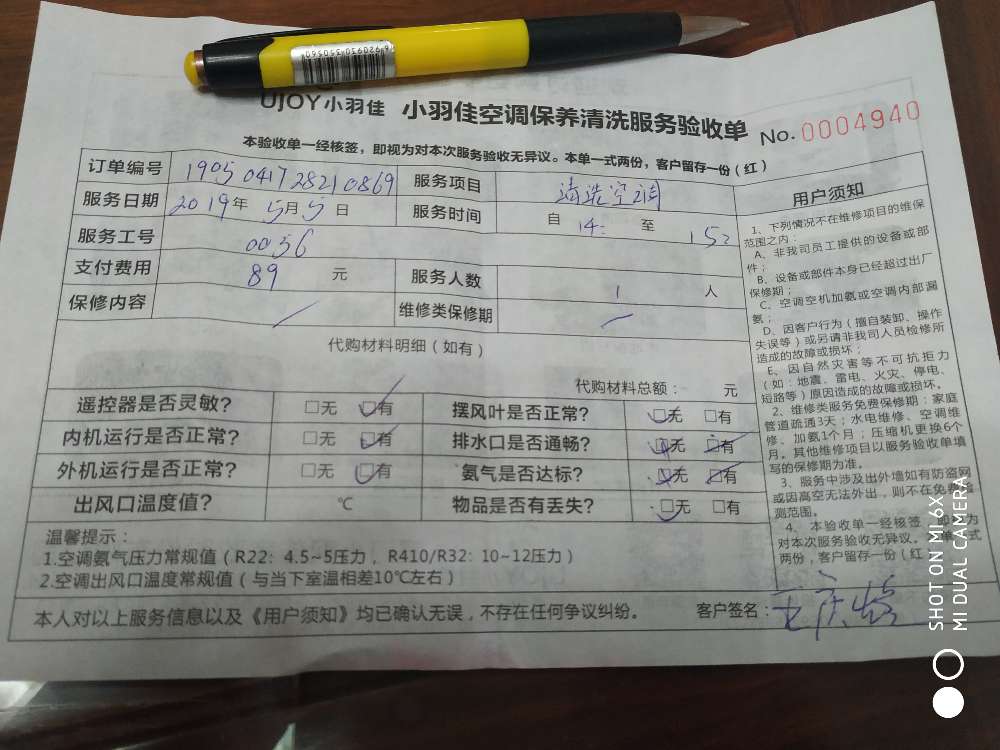 UJOY小羽佳 小羽佳空调保养清洗服务验收单 No. 0004940
本验收单一经核签，即视为对本次服务验收无异议。本单一式两份，客户留存一份（红）
订单编号 1905041728210869 服务项目 清洗空调
服务日期 2019年5月5日 服务时间 自 14: 至 15:
服务工号 0056
支付费用 89 元 服务人数 1 人
保修内容 维修类保修期
代购材料明细（如有）
代购材料总额： 元
遥控器是否灵敏? □无 □有 摆风叶是否正常? □无 □有
内机运行是否正常? □无 □有 排水口是否通畅? □无 □有
外机运行是否正常? □无 □有 氨气是否达标? □无 □有
出风口温度值? ℃ 物品是否有丢失? □无 □有
温馨提示：
1.空调氨气压力常规值（R22：4.5~5压力，R410/R32：10~12压力）
2.空调出风口温度常规值（与当下室温相差10℃左右）
本人对以上服务信息以及《用户须知》均已确认无误，不存在任何争议纠纷。 客户签名：
用户须知
1、下列情况不在维修项目的维保
范围之内：
A、非我司员工提供的设备或部
件；
B、设备或部件本身已经超过出厂
保修期；
C、空调空机加氨或空调内部漏
氨；
D、因客户行为（擅自装卸、操作
失误等）或另请非我司人员检修所
造成的故障或损坏；
E、因自然灾害等不可抗拒力
（如：地震、雷电、火灾、停电、
短路等）原因造成的故障或损坏。
2、维修类服务免费保修期：家庭
管道疏通3天；水电维修、空调维
修、加氨1个月；压缩机更换6个
月。其他维修项目以服务验收单填
写的保修期为准。
3、服务中涉及出外墙如有防盗网
或因高空无法外出，则不在免费检
测范围。
4、本验收单一经核签，即视为
对本次服务验收无异议。本单一式
两份，客户留存一份（红
SHOT ON MI 6X
MI DUAL CAMERA